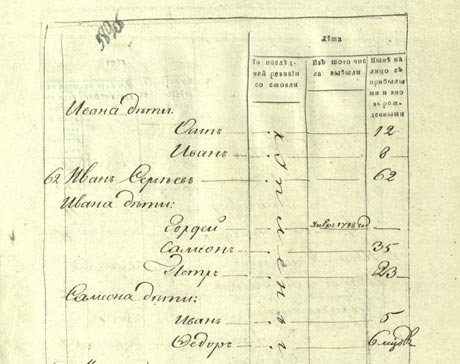 лѣта
По послѣд
ней ревизіи
состояли
Изъ того чис
ла выбыли
Нынѣ на
лицо съ
прибылы
ми и вно
въ рож
денными
Исаια дѣти:
12
Иванъ 8
62 Иванъ Сергѣевъ 62
Ивана дѣти:
Гордей 1798 год
Самιонъ 35
Петръ 23
Самιона дѣти:
Иванъ 5
Ѳедоръ 6